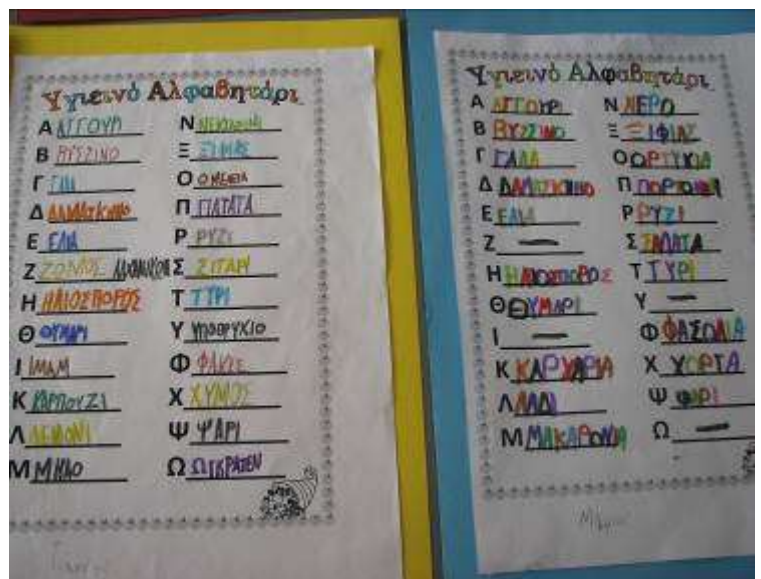 Υγιεινό Αλφαβητάρι
Α ΑΓΓΟΥΡΙ
Β ΒΥΣΣΙΝΟ
Γ
Δ ΔΑΜΑΣΚΗΝΟ
Ε ΕΛΙΑ
Ζ ΖΩΜΟΣ
Η ΗΛΙΟΣΠΟΡΟΣ
Θ ΘΥΜΑΡΙ
Ι ΙΜΑΜ
Κ ΚΑΡΠΟΥΖΙ
Λ ΛΕΜΟΝΙ
Μ ΜΗΛΟ
Ν
Ξ ΞΙΦΙΑΣ
Ο ΟΜΕΛΕΤΑ
Π ΠΑΤΑΤΑ
Ρ ΡΥΖΙ
Σ ΣΙΤΑΡΙ
Τ ΤΥΡΙ
Υ ΥΠΟΒΡΥΧΙΟ
Φ ΦΑΚΕΣ
Χ ΧΥΜΟΣ
Ψ ΨΑΡΙ
Ω ΩΓΚΡΑΤΕΝ
Υγιεινό Αλφαβητάρι
Α ΑΓΓΟΥΡΙ
Β ΒΥΣΣΙΝΟ
Γ ΓΑΛΑ
Δ ΔΑΜΑΣΚΙΝΟ
Ε ΕΛΙΑ
Ζ —
Η ΗΛΙΟΣΠΟΡΟΣ
Θ ΘΥΜΑΡΙ
Ι —
Κ ΚΑΡΧΑΡΙΑ
Λ ΛΑΔΙ
Μ ΜΑΚΑΡΟΝΙΑ
Ν ΝΕΡΟ
Ξ ΞΙΦΙΑΣ
Ο ΟΡΤΥΚΙΑ
Π ΠΟΡΤΟΚΑΛΙ
Ρ ΡΥΖΙ
Σ ΣΑΛΑΤΑ
Τ ΤΥΡΙ
Υ —
Φ ΦΑΣΟΛΙΑ
Χ ΧΟΡΤΑ
Ψ ΨΑΡΙ
Ω —